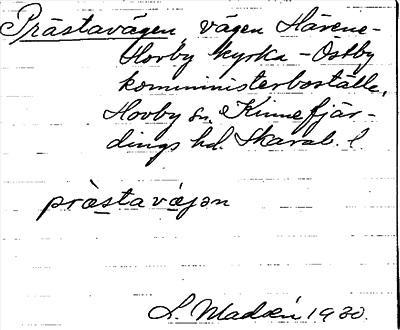 Prästavägen, vägen Härene-
Hovby kyrka - Ostby
komministerboställe,
Hovby sn. Kinnefjär-
dings hd. Skarab. l
prästavägən
L. Madsén 1930.